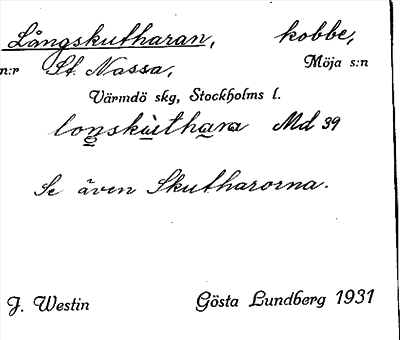 Långskutharan, kobbe,
n:r St. Nassa, Möja s:n
Värmdö skg, Stockholms l.
lonskùthara Md 39
Se även Skutharorna.
J. Westin Gösta Lundberg 1931